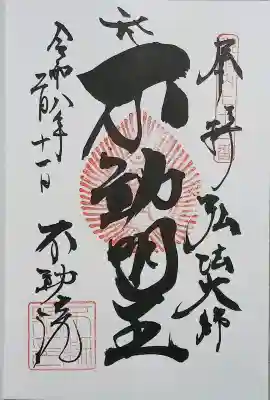 奉拝
弘法大師
不動明王
令和八年
二月十一日
不動院